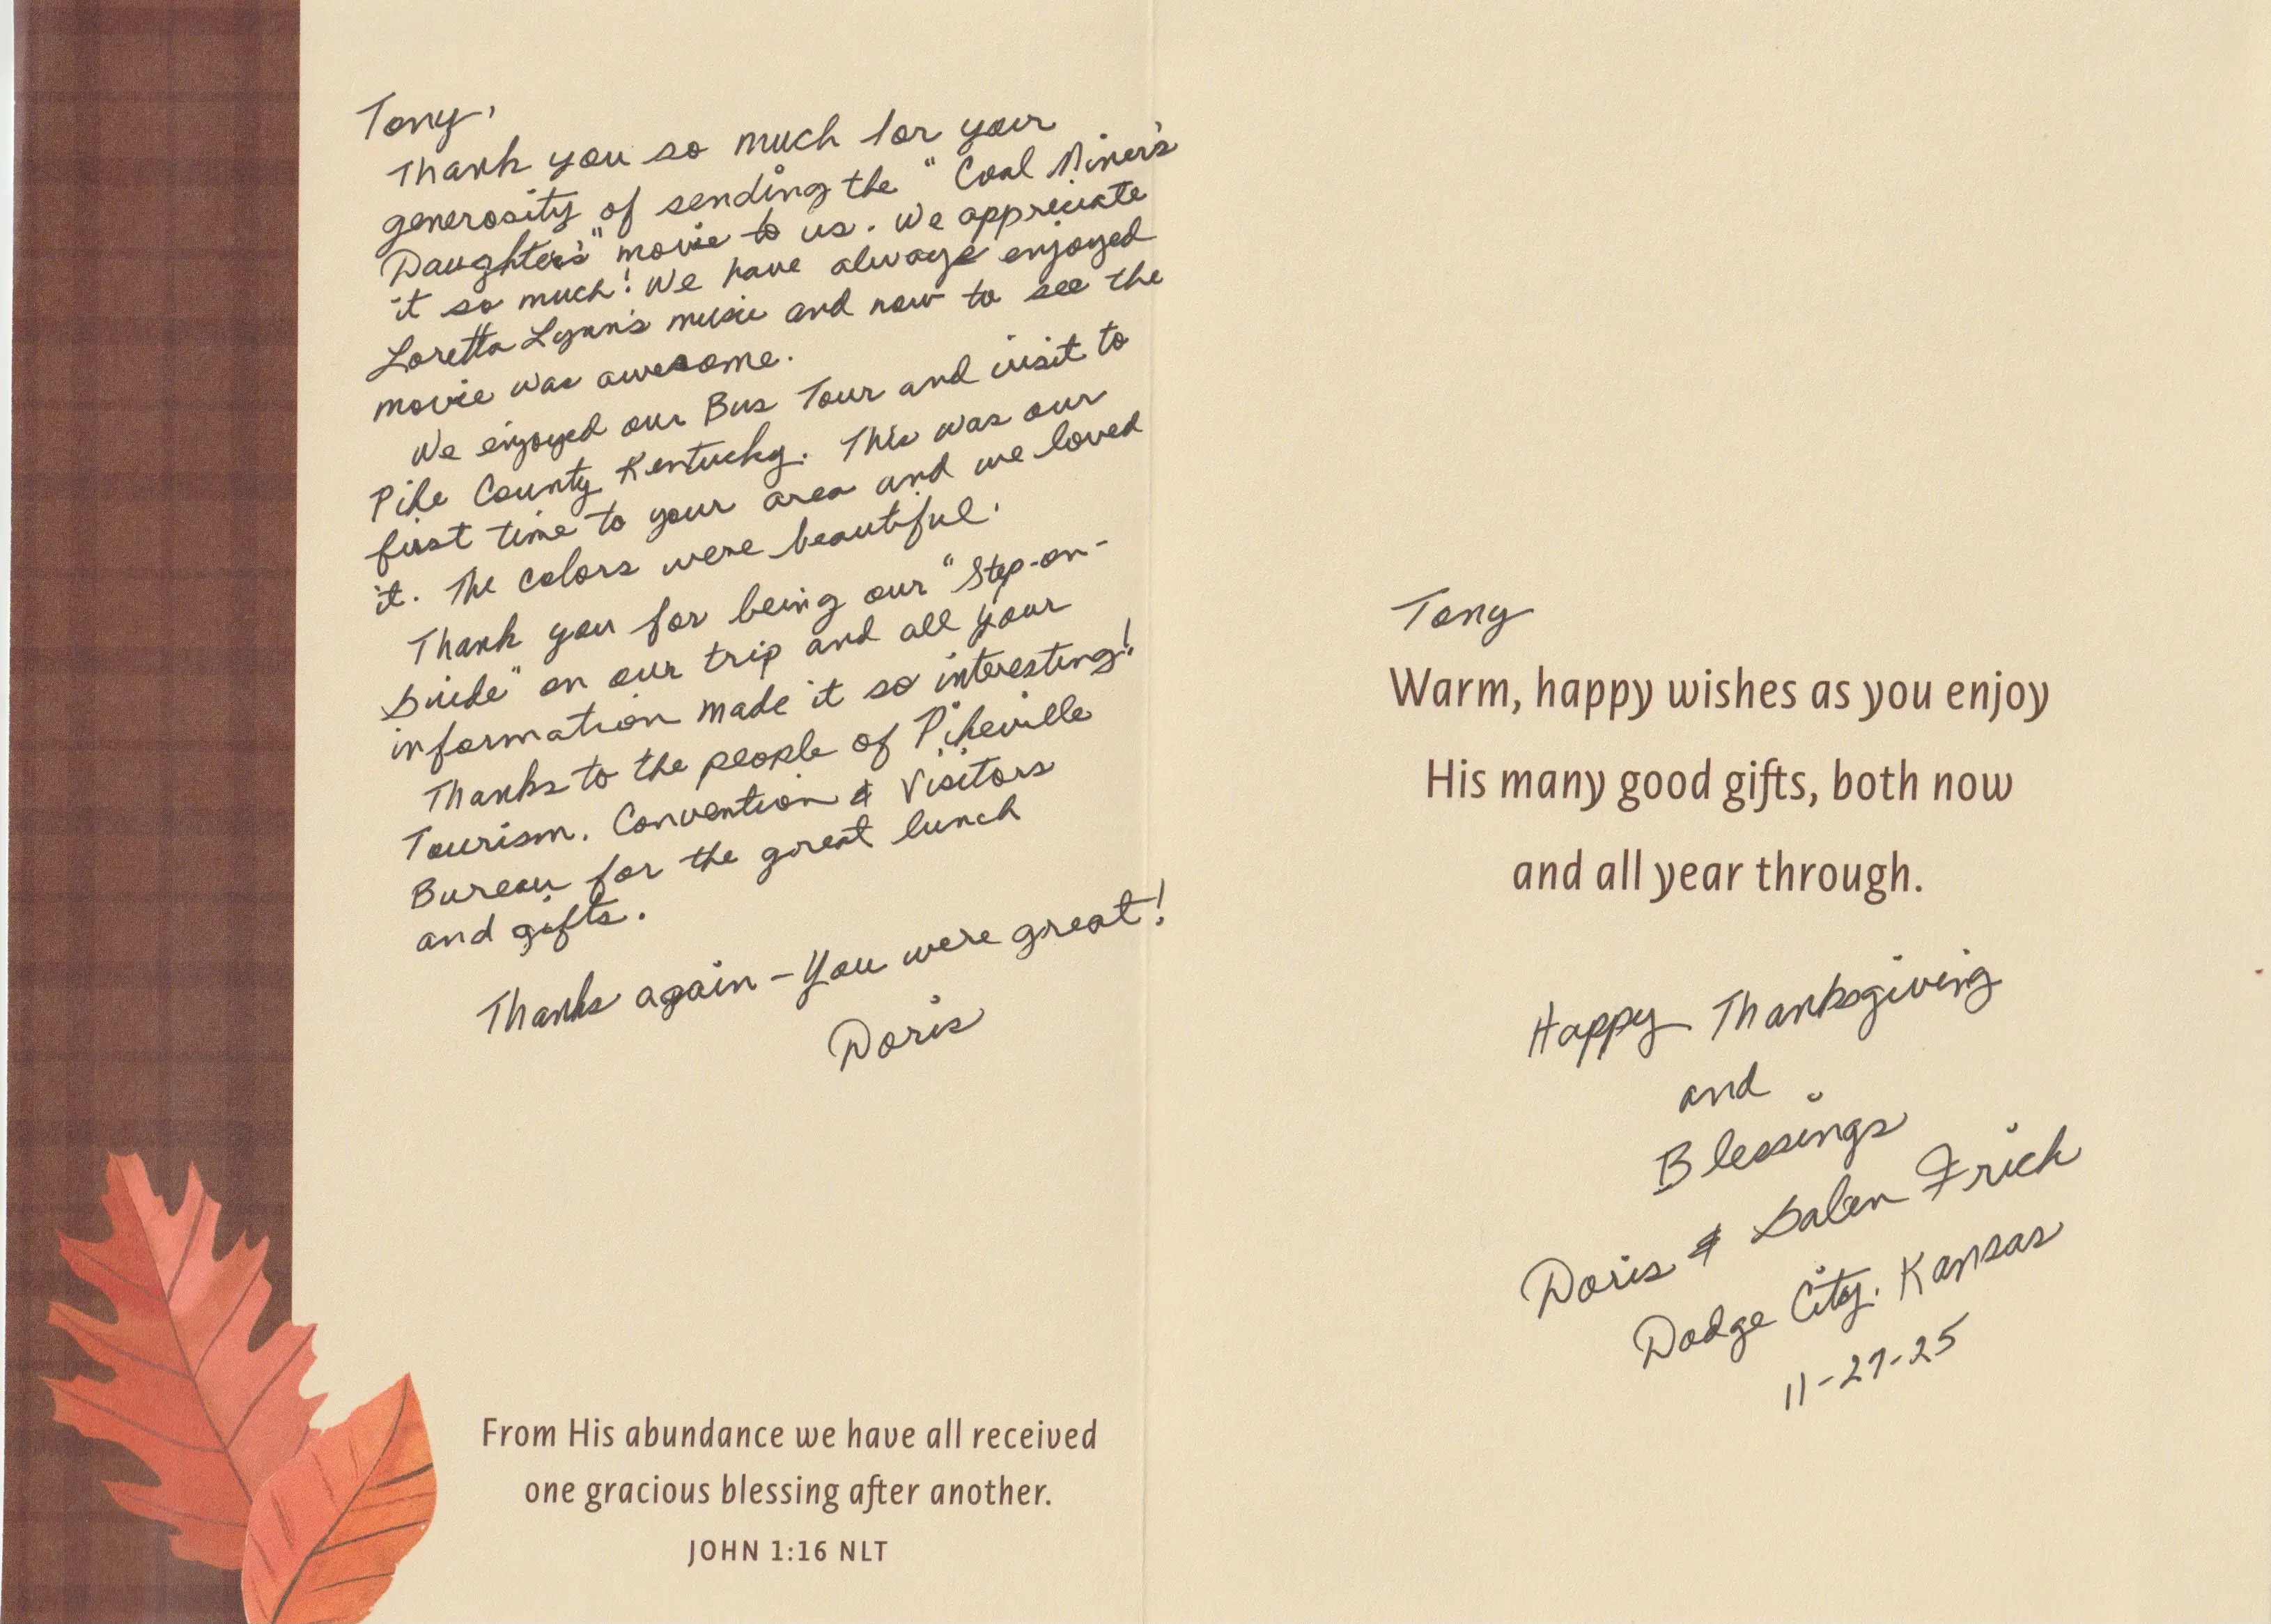 Tony,
Thank you so much for your
generosity of sending the "Coal Miner's
Daughter's" movie to us. We appreciate
it so much! We have always enjoyed
Loretta Lynn's music and now to see the
movie was awesome.
We enjoyed our Bus Tour and visit to
Pike County Kentucky. This was our
first time to your area and we loved
it. The colors were beautiful.
Thank you for being our "Step-on-
Guide" on our trip and all your
information made it so interesting!
Thanks to the people of Pikeville
Tourism, Convention & Visitors
Bureau for the great lunch
and gifts.
Thanks again - You were great!
Doris
From His abundance we have all received
one gracious blessing after another.
JOHN 1:16 NLT
Tony
Warm, happy wishes as you enjoy
His many good gifts, both now
and all year through.
Happy Thanksgiving
and
Blessings
Doris & Galen Frick
Dodge City, Kansas
11-27-25